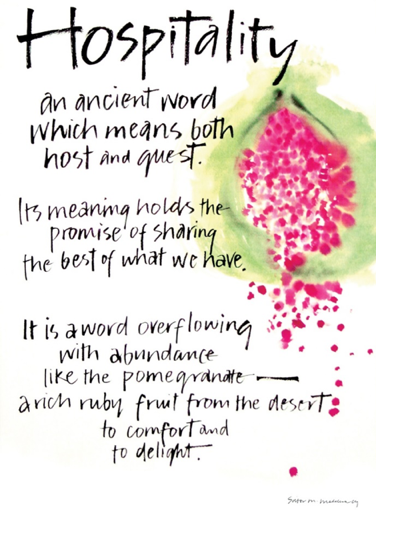 Hospitality
an ancient word
which means both
host and guest.
Its meaning holds the
promise of sharing
the best of what we have.
It is a word overflowing
with abundance
like the pomegranate —
a rich ruby fruit from the desert
to comfort and
to delight.